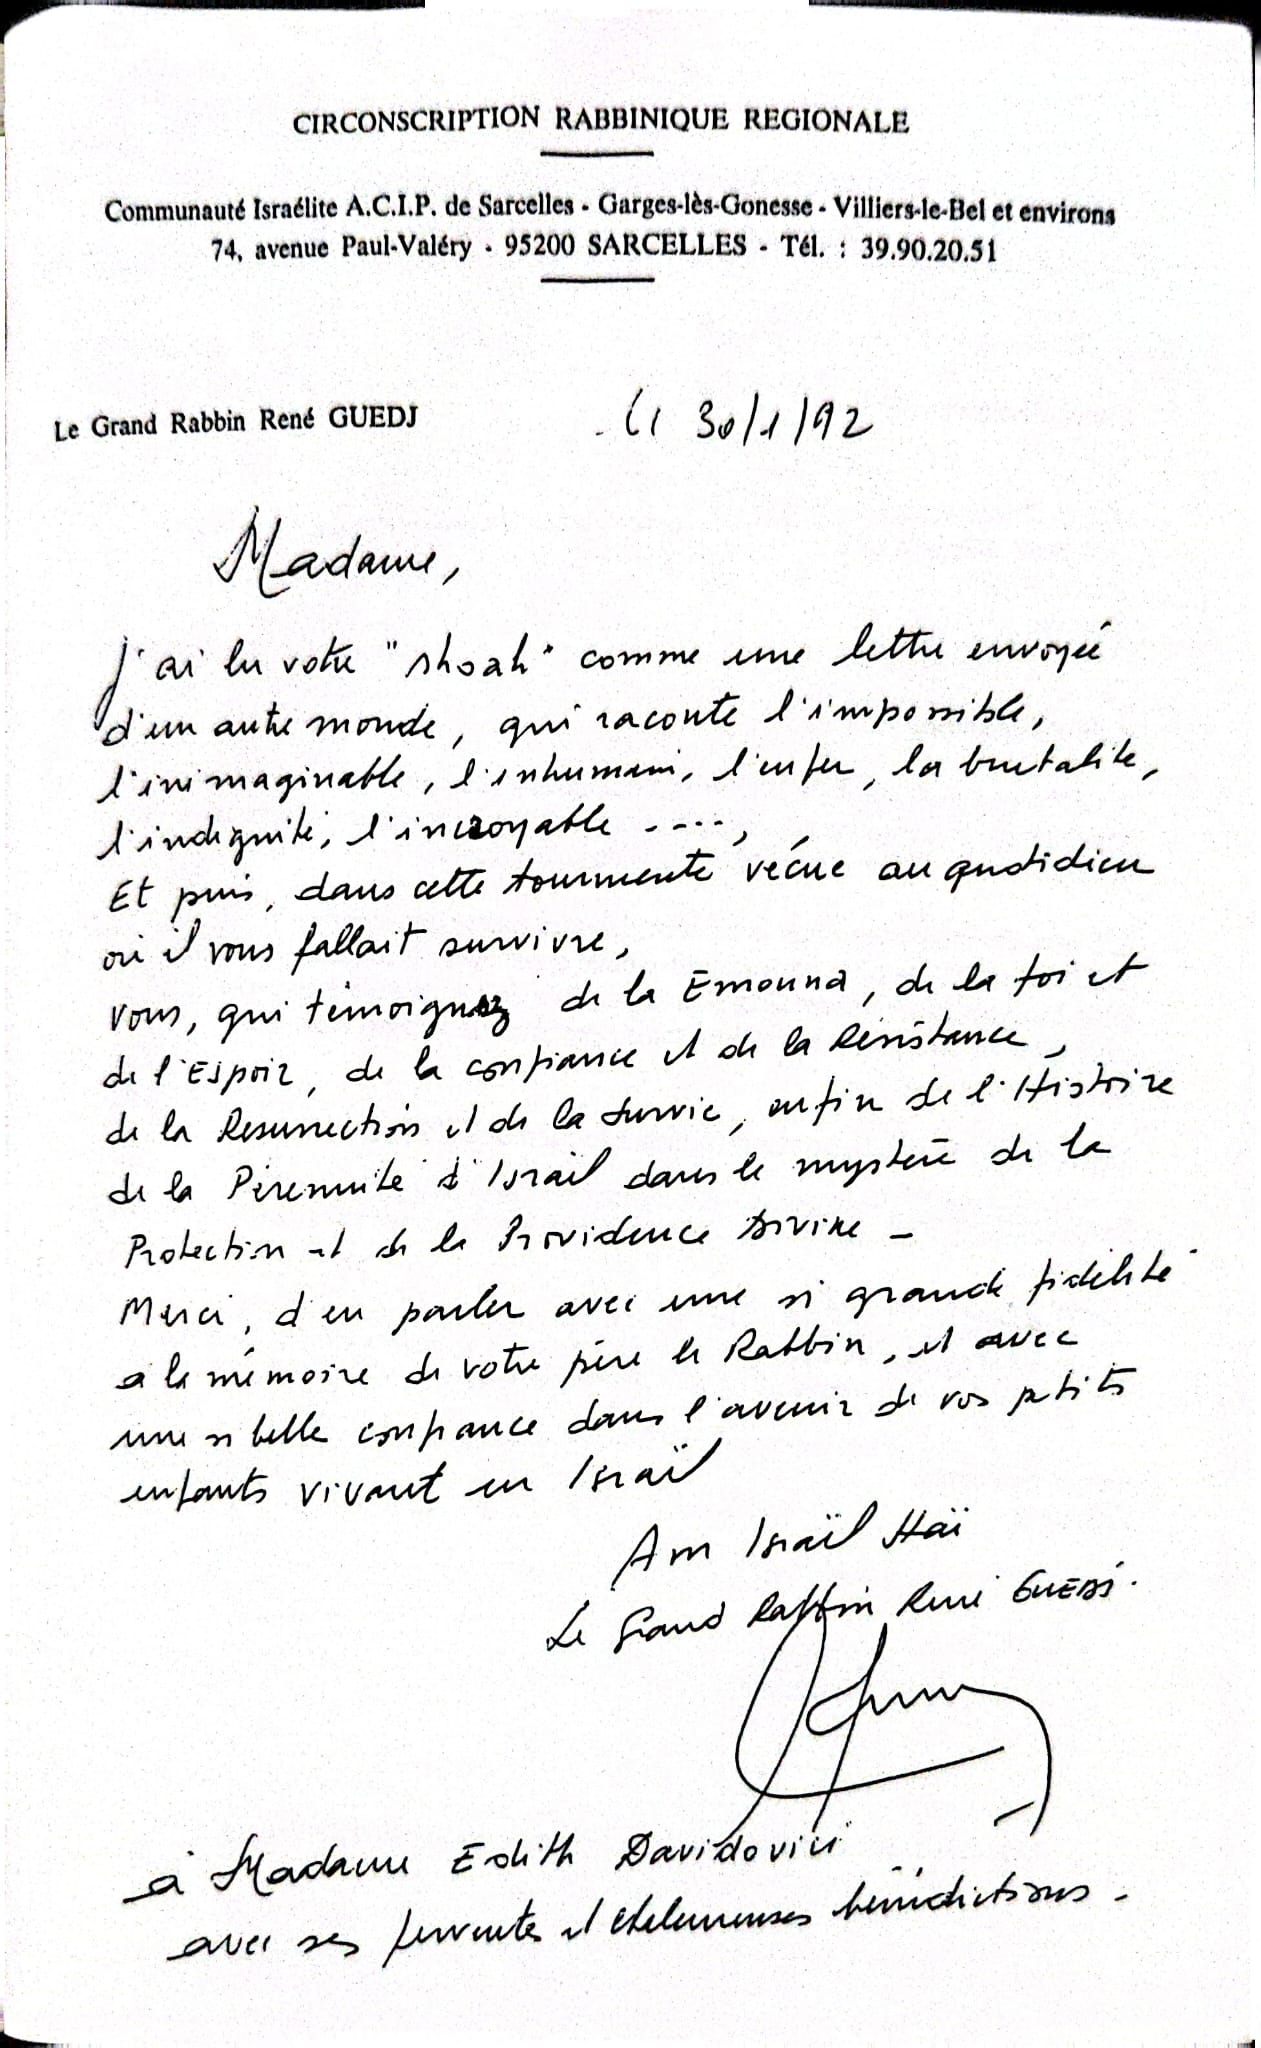 CIRCONSCRIPTION RABBINIQUE REGIONALE
Communauté Israélite A.C.I.P. de Sarcelles - Garges-lès-Gonesse - Villiers-le-Bel et environs
74, avenue Paul-Valéry - 95200 SARCELLES - Tél. : 39.90.20.51
Le Grand Rabbin René GUEDJ
30/1/92
Madame,
J'ai lu votre "shoah" comme une lettre envoyée
d'un autre monde, qui raconte l'impossible,
l'inimaginable, l'inhumain, l'enfer, la brutalité,
l'indignité, l'incroyable ....,
Et puis, dans cette tourmente vécue au quotidien
où il vous fallait survivre,
vous, qui témoignez de la Emouna, de la foi et
de l'Espoir, de la confiance et de la Résistance,
de la Resurrection et de la survie, enfin de l'Histoire
de la Pérennité d'Israël dans le mystère de la
Protection et de la Providence Divine -
Merci, d'en parler avec une si grande fidélité
a la mémoire de votre père le Rabbin, et avec
une si belle confiance dans l'avenir de vos petits
enfants vivant en Israël
Am Israël Haï
Le Grand Rabbin René GUEDJ.
à Madame Edith Davidovici
avec ses ferventes et chaleureuses bénédictions -